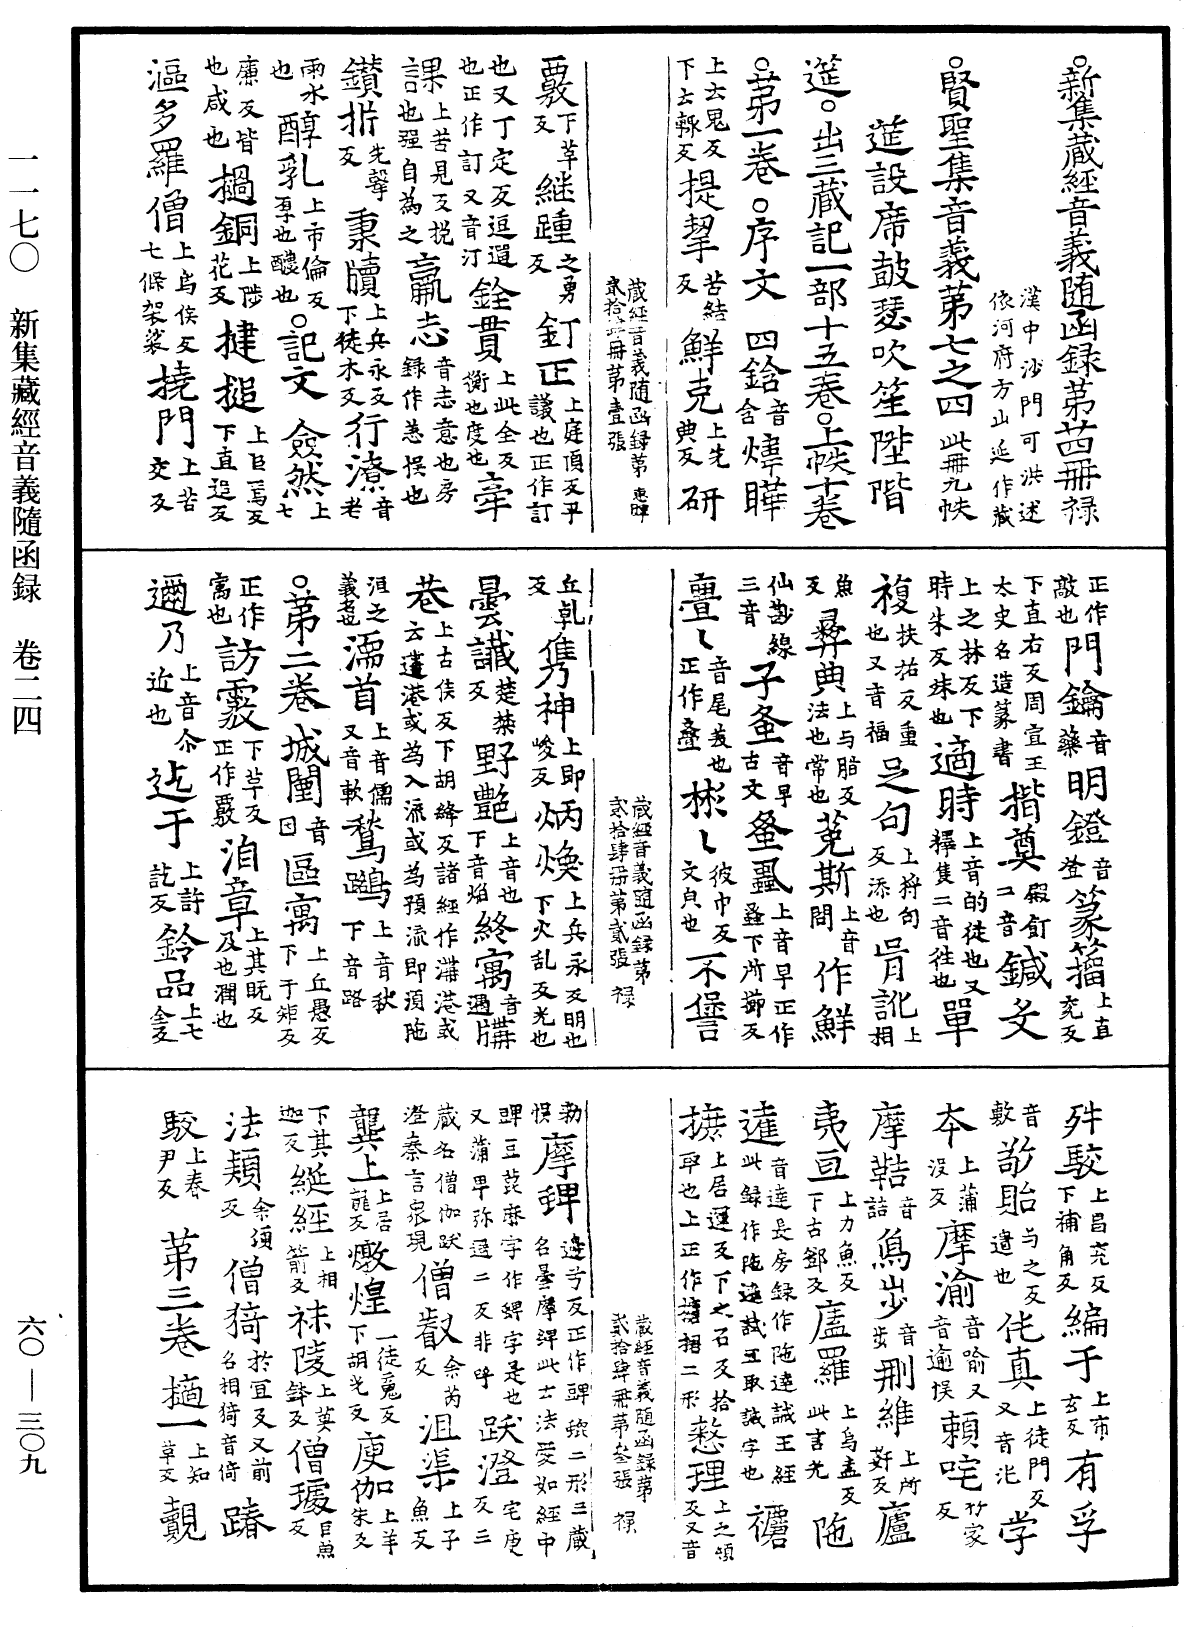 一一七〇　新集藏經音義隨函録　卷二四
六〇—三〇九
新集蔵經音義随函録苐廿四冊 禄
漢中沙門可洪述
依河府方山延作藏
賢聖集音義苐七之四 此冊九帙
筵設席鼓瑟吹笙陞階
筵。出三蔵記一部十五卷。上帙十卷
苐一卷。序文 四鋡 音含 㷸曄
上云鬼反下云輒反 提挈 苦結反 鮮克 上先典反 研
蔵經音義随函録第貳拾肆冊第壹張
覈 下革反 継踵 之勇反 釘正 上庭頂反平議也正作訂
也又丁定反逗遛也正作訂又音汀 銓貫 上此全反衡也度也 牽
課 上苦見反挽言也强自為之 羸志 音志意也房録作恙悮也
鑚㭊 先擊反 秉牘 上兵永反下徒木反 行潦 音老
雨水也 醇乳 上市倫反厚也醲也 。記文 僉然 上七
廉反皆也咸也 檛銅 上陟花反 揵搥 上巨焉反下直追反
漚多羅僧 上烏侯反七條袈裟 撓門 上苦交反
正作敲也 門鑰 音藥 明鐙 音登 篆籀 上直兖反
下直右反周宣王太史名造篆書 揩奠 二音 鍼艾
上之林反下時朱反殊也 適時 上音的徒也又釋隻二音往也 單
複 扶福反重也又音福 足句 上將句反添也 㟁訛 上相
魚反 彛典 上与脂反法也常也 菟斯 上音問 作鮮
仙尠線三音 子蚤 音早古文 蚤虱 上音早正作蚤下所擳反
亹〻 音尾羙也正作亹 彬〻 彼巾反文皃也 不僣
蔵經音義随函録第貳拾肆冊第貳張 禄
丘乹反 雋神 上即峻反 炳煥 上兵永反明也下火乱反光也
曇讖 楚禁反 野艶 上音也下音焰 終寓 音遇 牒
巷 上古侯反下胡絳反諸經作溝港或云蘧港或為入流或為預流即須陁
洹之義 濡首 上音儒又音軟 鶖鷺 上音秋下音路
。苐二卷 城闉 音因 區寓 上丘愚反下于矩反
正作寓也 訪覈 下革反正作覈 洎章 上其既反及也潤也
邇乃 上音尒近也 迄于 上許訖反 鈴品 上七全反
舛駮 上昌兖反下補角反 編于 上布玄反 有孚
音敷 訪貽 与之反遺也 侂真 上徒門反又音沌 学
本 上蒲没反 摩渝 音喻又音逾悮 頼吒 竹家反
摩鞊 音詰 鳥步 音步 刪維 上所姧反 廬
夷亘 上力魚反下古鄧反 廬羅 上烏盍反此言光 陁
達 音達長房録作陁達誡王經此録作陁達試王取誡字也 禮
摭 上居運反下之石反拾取也上正作攟捃二形 整理 上之領反又音
蔵經音義随函録第貳拾肆冊第叁張 禄
勅悮 摩䩛 邊兮反正作䩛
又蒲畢弥選二反非呼 跋澄 宅庚反二
蔵名僧伽跋澄秦言衆現 僧叡 余芮反 沮渠 上子魚反
龔上 上居龍反 燉煌 一徒䰟反下胡光反 庾伽 上羊朱反
下其迦反 綖經 上相箭反 祙陵 上莫鉢反 僧璩 巨魚反
法頴 余頃反 僧猗 於宜反又前名相猗音倚 踳
駮 上春尹反 苐三卷 擿一 上知革反 覿